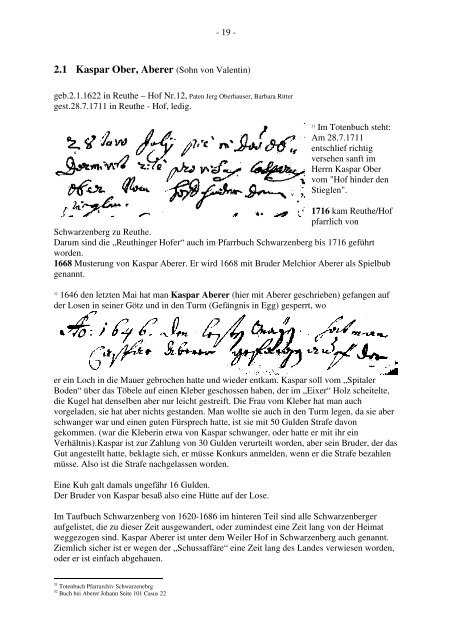 - 19 -
2.1 Kaspar Ober, Aberer (Sohn von Valentin)
geb.2.1.1622 in Reuthe – Hof Nr.12, Paten Jerg Oberhauser, Barbara Ritter
gest.28.7.1711 in Reuthe - Hof, ledig.
28
Im Totenbuch steht:
Am 28.7.1711
entschlief richtig
versehen sanft im
Herrn Kaspar Ober
vom "Hof hinder den
Stieglen".
1716 kam Reuthe/Hof
pfarrlich von
Schwarzenberg zu Reuthe.
Darum sind die „Reuthinger Hofer“ auch im Pfarrbuch Schwarzenberg bis 1716 geführt
worden.
1668 Musterung von Kaspar Aberer. Er wird 1668 mit Bruder Melchior Aberer als Spielbub
genannt.
1646 den letzten Mai hat man Kaspar Aberer (hier mit Aberer geschrieben) gefangen auf
der Losen in seiner Götz und in den Turm (Gefängnis in Egg) gesperrt, wo
Ao: 1646. den
er ein Loch in die Mauer gebrochen hatte und wieder entkam. Kaspar soll vom „Spitaler
Boden“ über das Töbele auf einen Kleber geschossen haben, der im „Eixer“ Holz scheitelte,
die Kugel hat denselben aber nur leicht gestreift. Die Frau vom Kleber hat man auch
vorgeladen, sie hat aber nichts gestanden. Man wollte sie auch in den Turm legen, da sie aber
schwanger war und einen guten Fürsprech hatte, ist sie mit 50 Gulden Strafe davon
gekommen. (war die Kleberin etwa von Kaspar schwanger, oder hatte er mit ihr ein
Verhältnis).Kaspar ist zur Zahlung von 30 Gulden verurteilt worden, aber sein Bruder, der das
Gut angestellt hatte, beklagte sich, er müsse Konkurs anmelden, wenn er die Strafe bezahlen
müsse. Also ist die Strafe nachgelassen worden.
Eine Kuh galt damals ungefähr 16 Gulden.
Der Bruder von Kaspar besaß also eine Hütte auf der Lose.
Im Taufbuch Schwarzenberg von 1620-1686 im hinteren Teil sind alle Schwarzenberger
aufgelistet, die zu dieser Zeit ausgewandert, oder zumindest eine Zeit lang von der Heimat
weggezogen sind. Kaspar Aberer ist unter dem Weiler Hof in Schwarzenberg auch genannt.
Ziemlich sicher ist er wegen der „Schussaffäre“ eine Zeit lang des Landes verwiesen worden,
oder er ist einfach abgehauen.
Totenbuch Pfarrarchiv Schwarzenebrg
Buch bei Aberer Johann Seite 101 Casus 22